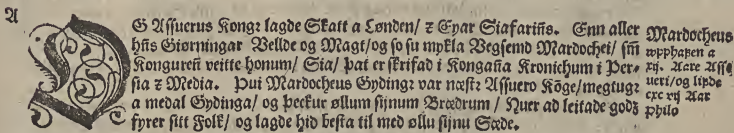 A
OG Assuerus Kongr lagde Skatt a Lønden/ z Eyar Siafarins. Enn aller
hans Giørningar Vellde og Magt/og so su mykla Vegsemd Mardochei/ sem
Kongureñ veitte honum/ Sia/ þat er skrifad i Kongaña Kronichum i Per-
sia z Media. Þui Mardocheus Gydingr var næstr Assuero Köge/megtugr
a medal Gydinga/ og þeckur øllum sijnum Brædrum/ Huer ad leitade gods
fyrer sitt Folk/ og lagde hid besta til med øllu sijnu Sæde.
Mardocheus
vpphafen a
xij. Aare Assu
ueri/ og lifde
cxc vij Aar
philo